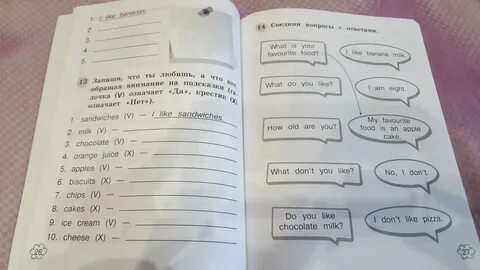 1. I like bananas.
2.
3.
4.
5.
13 Запиши, что ты любишь, а что нет,
обращая внимание на подсказки (га-
лочка (V) означает «Да», крестик (X)
означает «Нет»).
1. sandwiches (V) — I like sandwiches.
2. milk (V) —
3. chocolate (V) —
4. orange juice (X) —
5. apples (V) —
6. biscuits (X) —
7. chips (V) —
8. cakes (X) —
9. ice cream (V) —
10. cheese (X) —
26
14 Соедини вопросы с ответами.
What is your
favourite food?
I like banana milk.
What do you like?
I am eight.
How old are you?
My favourite
food is an apple
cake.
What don't you like?
No, I don't.
Do you like
chocolate milk?
I don't like pizza.
27